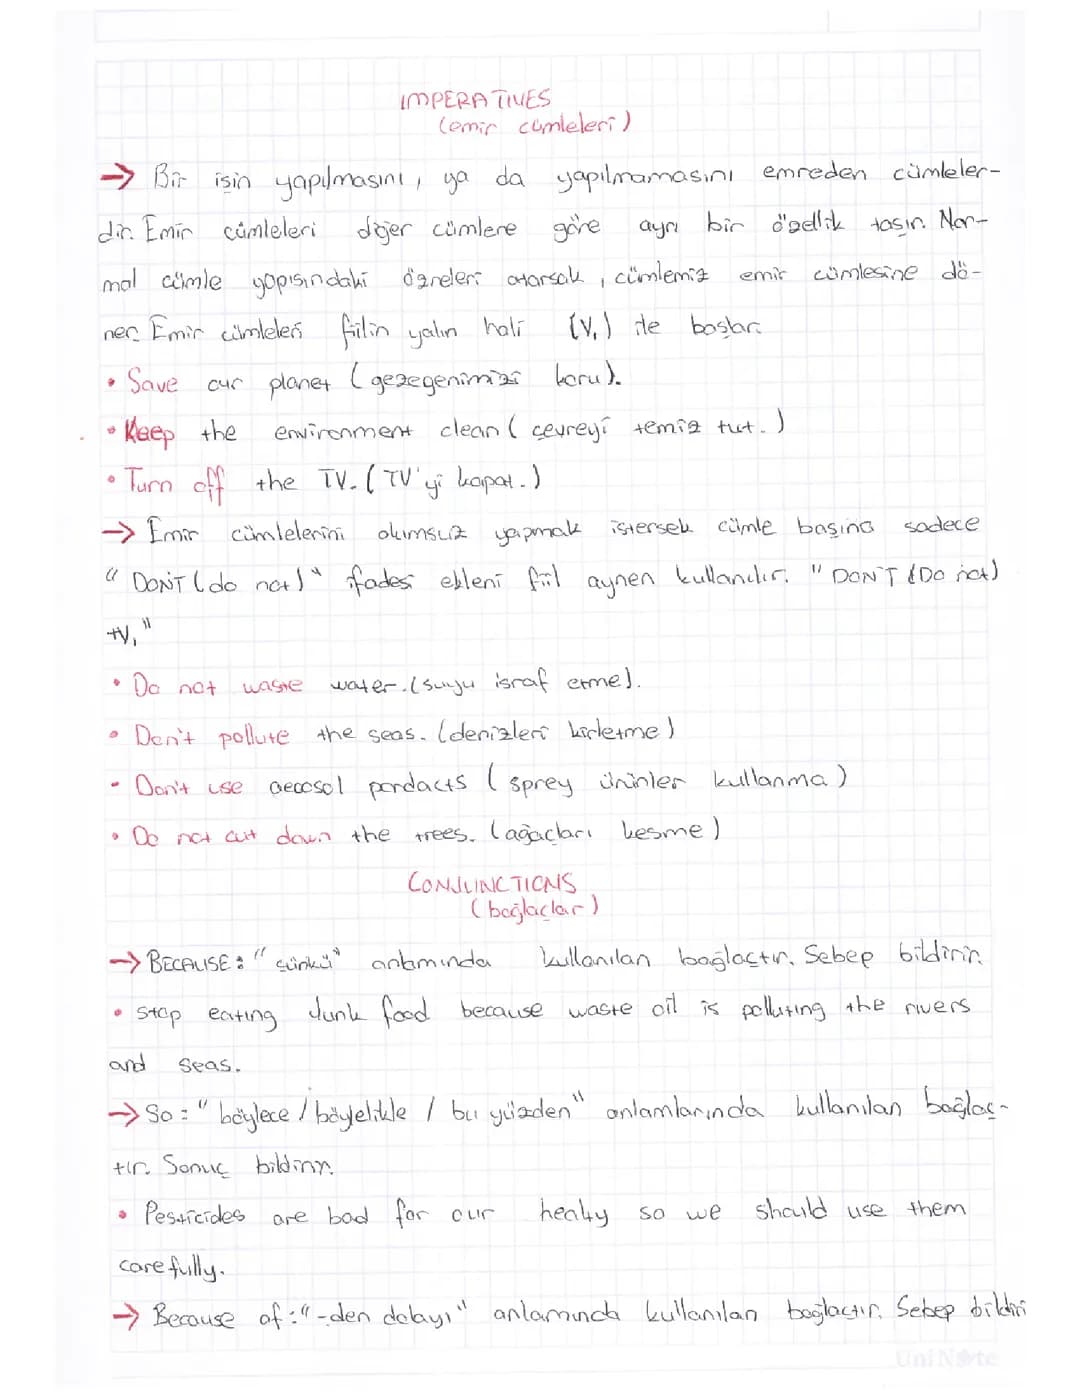 IMPERATIVES
(emir cümleleri)
→ Bir işin yapılmasını, ya da yapılmamasını emreden cümleler-
dir. Emir cümleleri diğer cümlere göre ayrı bir özellik taşır. Nor-
mal cümle yapısındaki öğreleri atarsak, cümlemiz emir cümlesine dö-
ner. Emir cümleleri fiilin yalın hali (V₁) ile başlar.
• Save our planet (gezegenimizi koru).
• Keep the environment clean (çevreyi temiz tut.)
• Turn off the TV. (TV'yi kapat.)
→ Emir cümlelerini olumsuz yapmak istersek cümle başına sadece
"DON'T (do not)" ifadesi eklenir fiil aynen kullanılır. "DON'T (Do not)
+V₁"
• Do not waste water. (suyu israf etme).
• Don't pollute the seas. (denizleri kirletme)
• Don't use aerosol pordacts (sprey ürünler kullanma)
• Do not cut down the trees. (ağaçları kesme)
CONJUNCTIONS
(bağlaçlar)
→ BECAUSE: "çünkü" anlamında kullanılan bağlaçtır. Sebep bildirir.
• Stop eating Junk food because waste oil is polluting the rivers
and seas.
→ So: "böylece / böyelikle / bu yüzden" anlamlarında kullanılan bağlaç-
tır. Sonuç bildirir.
• Pesticides are bad for our healty so we should use them
carefully.
→ Because of: "-den dolayı" anlamında kullanılan bağlaçtır. Sebep bildiri
UniNote